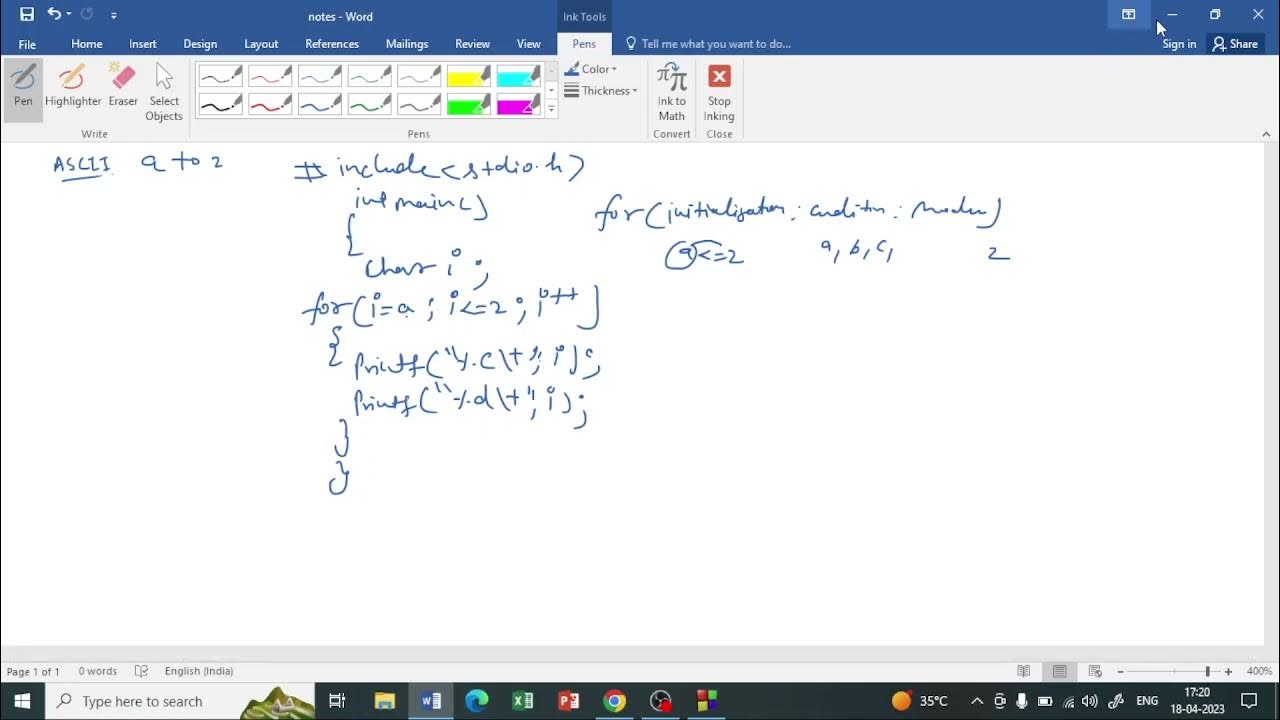 notes - Word
Ink Tools
File Home Insert Design Layout References Mailings Review View Pens Tell me what you want to do... Sign in Share
Pen Highlighter Eraser Select Objects
Color
Thickness
Ink to Math
Stop Inking
Write Pens Convert Close
ASCII a to z
# include<stdio.h>
int main()
{
char i ;
for(i=a ; i<=z ; i++)
{
printf("%c\t", i);
printf("%d\t", i);
}
}
for(initialisation;
a<=z
a, b, c, z
Page 1 of 1 0 words English (India) 400%
Type here to search
35°C ENG 17:20
18-04-2023